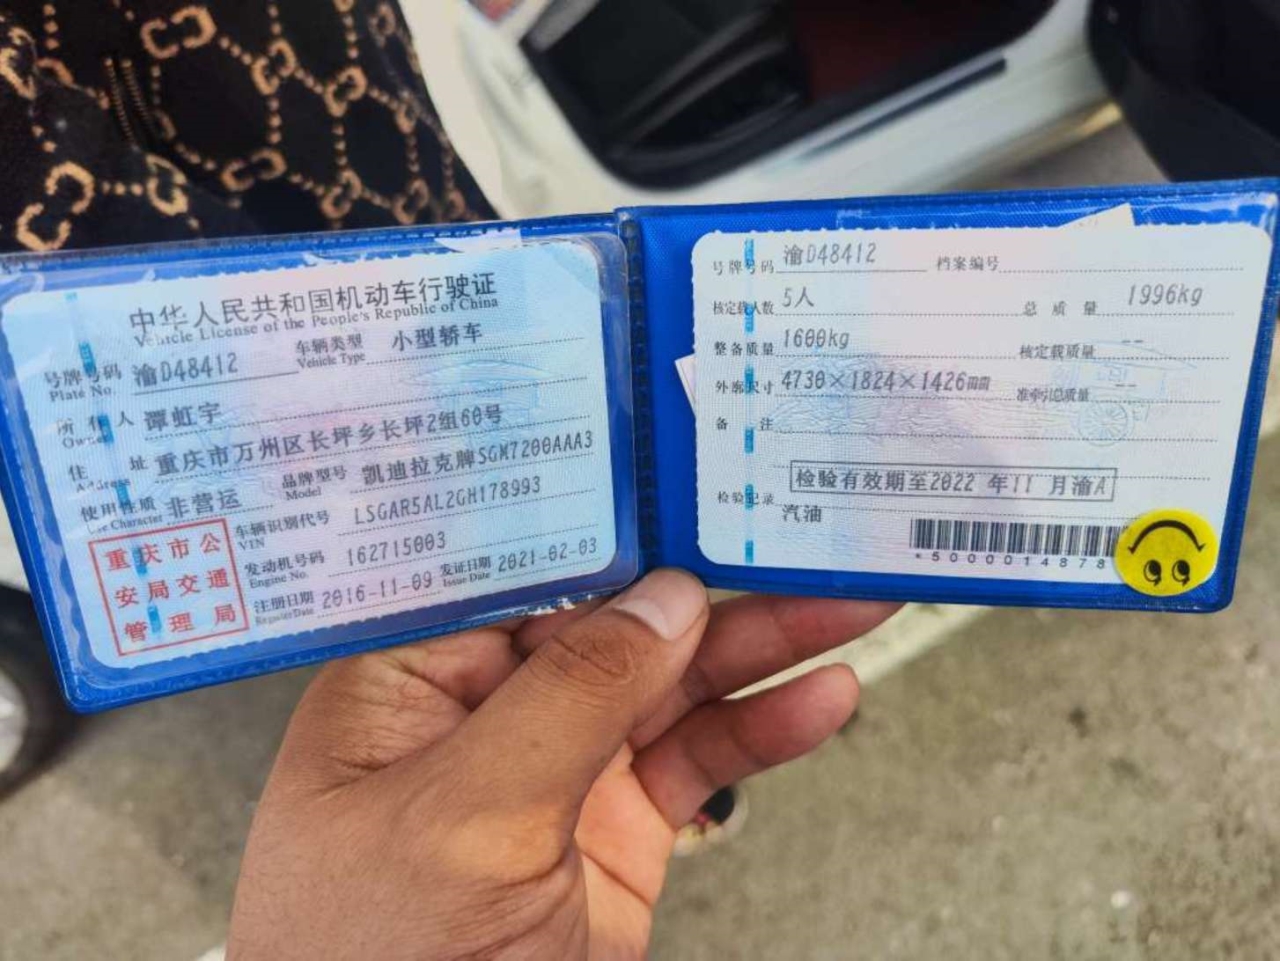 中华人民共和国机动车行驶证
Vehicle License of the People's Republic of China
号牌号码 渝D48412 车辆类型 小型轿车
Plate No. Vehicle Type
所有人 谭虹宇
Owner
住址 重庆市万州区长坪乡长坪2组60号
Address
使用性质 非营运 品牌型号 凯迪拉克牌SGM7200AAA3
Use Character Model
车辆识别代号 LSGAR5AL2GH178993
VIN
发动机号码 162715003
Engine No.
注册日期 2016-11-09 发证日期 2021-02-03
Register Date Issue Date
重庆市公
安局交通
管理局
号牌号码 渝D48412 档案编号
核定载人数 5人 总质量 1996kg
整备质量 1600kg 核定载质量 --
外廓尺寸 4730×1824×1426mm 准牵引总质量 --
备注
检验有效期至2022年11月渝A
检验记录
汽油
*5000014878